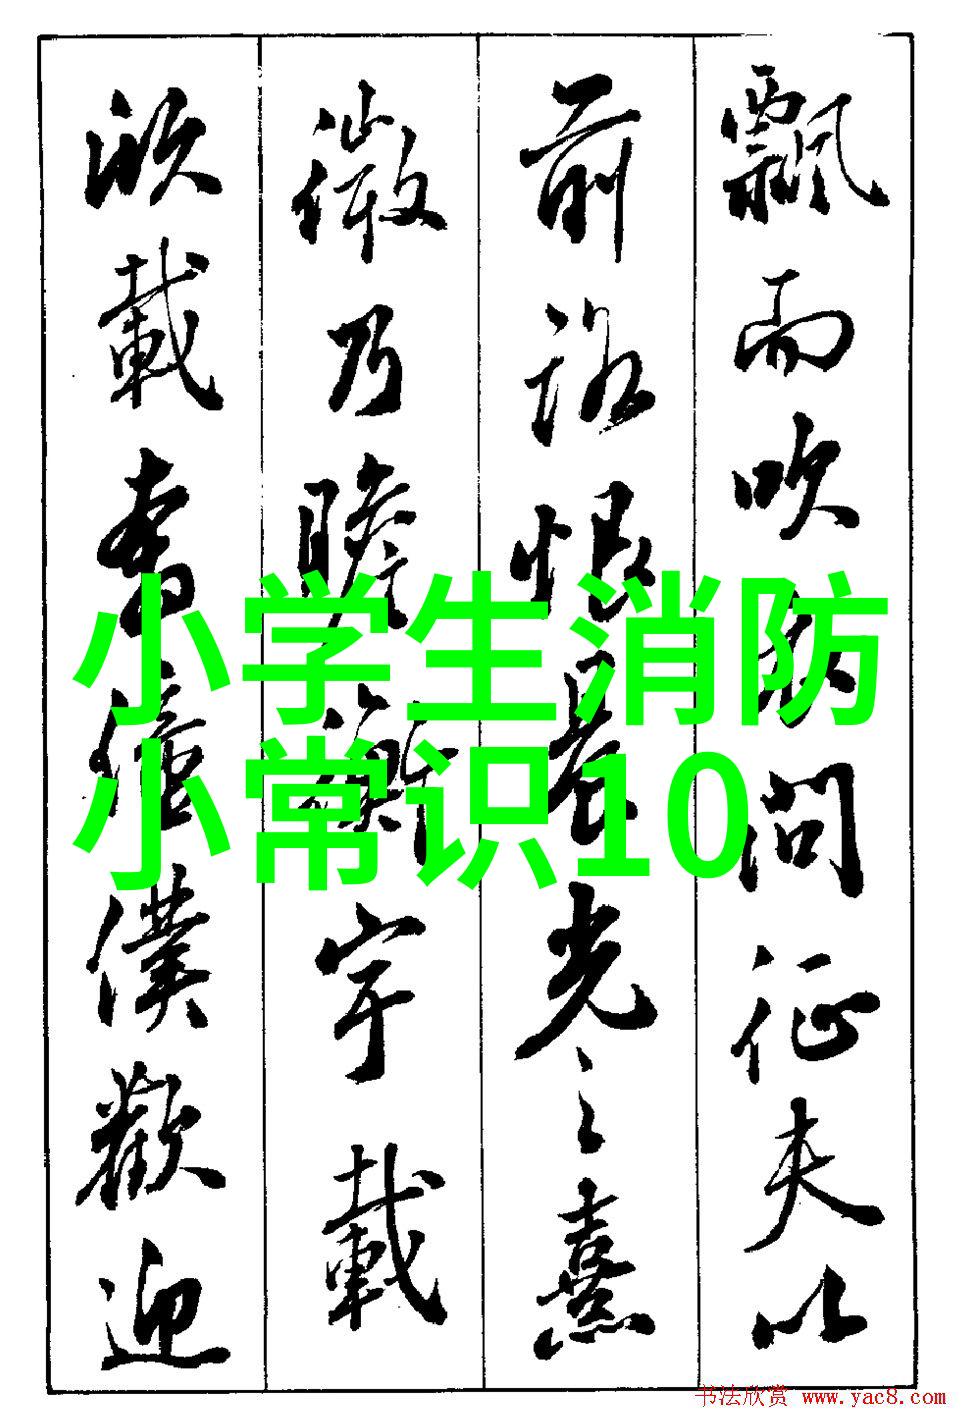 飄而吹衣問征夫以
前路恨晨光之熹
微乃瞻衡宇載
欣載奔僮僕歡迎
小学生消防
小常识10
书法欣赏 www.yac8.com